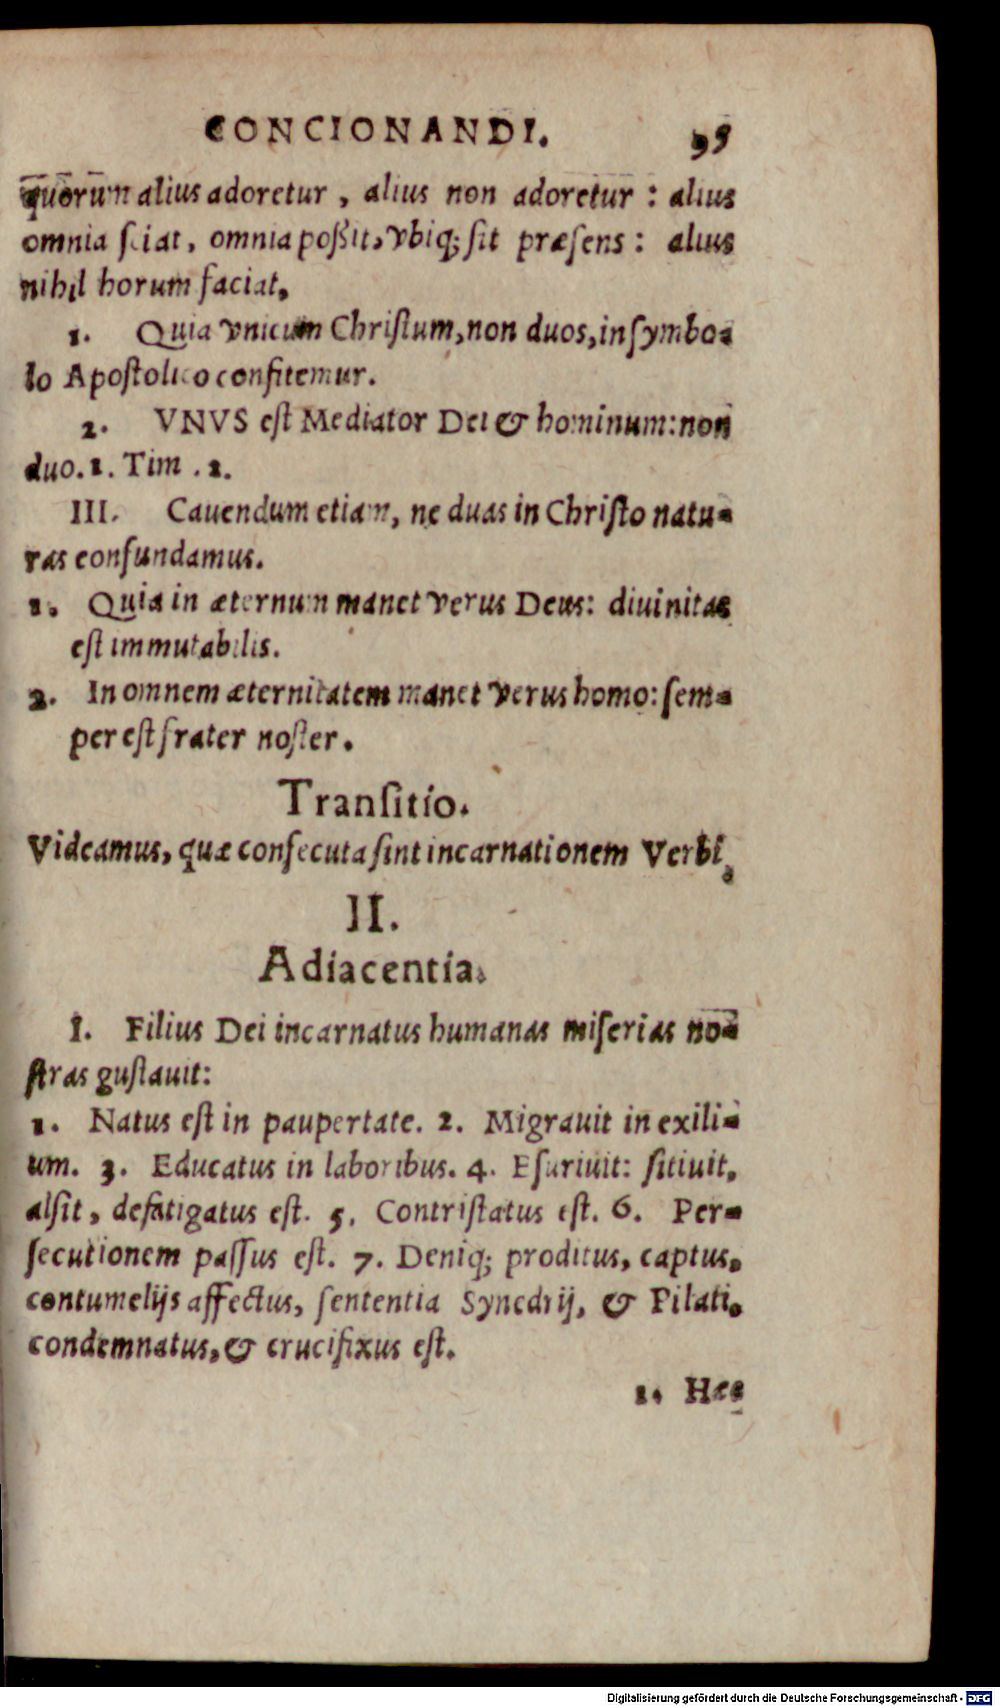 CONCIONANDI. 95
quorum alius adoretur, alius non adoretur: alius
omnia ſciat, omnia poßit, vbiq; ſit præſens: alius
nihil horum faciat.
1. Quia vnicum Chriſtum, non duos, in ſymbo-
lo Apoſtolico confitemur.
2. VNVS eſt Mediator Dei & hominum: non
duo. 1. Tim. 2.
III. Cauendum etiam, ne duas in Chriſto natu-
ras confundamus.
1. Quia in æternum manet verus Deus: diuinitas
eſt immutabilis.
2. In omnem æternitatem manet verus homo: ſem-
per eſt frater noſter.
Tranſitio.
Videamus, quæ conſecuta ſint incarnationem Verbi,
II.
Adiacentia.
I. Filius Dei incarnatus humanas miſerias no-
ſtras guſtauit:
1. Natus eſt in paupertate. 2. Migrauit in exili-
um. 3. Educatus in laboribus. 4. Eſuriuit: ſitiuit,
alſit, defatigatus eſt. 5. Contriſtatus eſt. 6. Per-
ſecutionem paſſus eſt. 7. Deniq; proditus, captus,
contumelijs affectus, ſententia Synedrij, & Pilati,
condemnatus, & crucifixus eſt.
1. Hæc
Digitalisierung gefördert durch die Deutsche Forschungsgemeinschaft - DFG